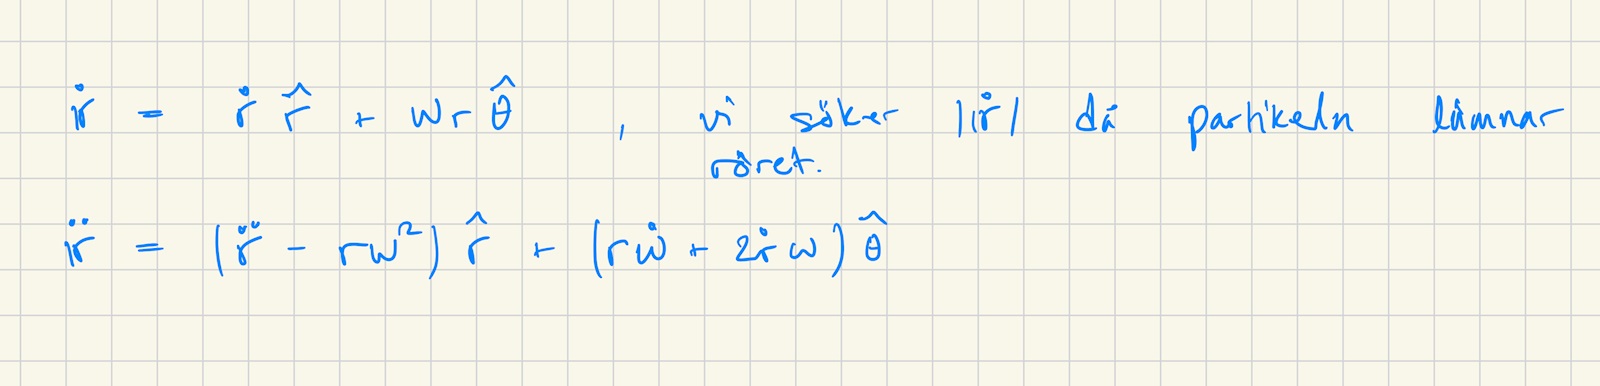 ṙ = ṙ r̂ + ωr θ̂ , vi söker |ṙ| då partikeln lämnar
röret.
r̈ = (r̈ - rω²) r̂ + (rω̇ + 2ṙω) θ̂